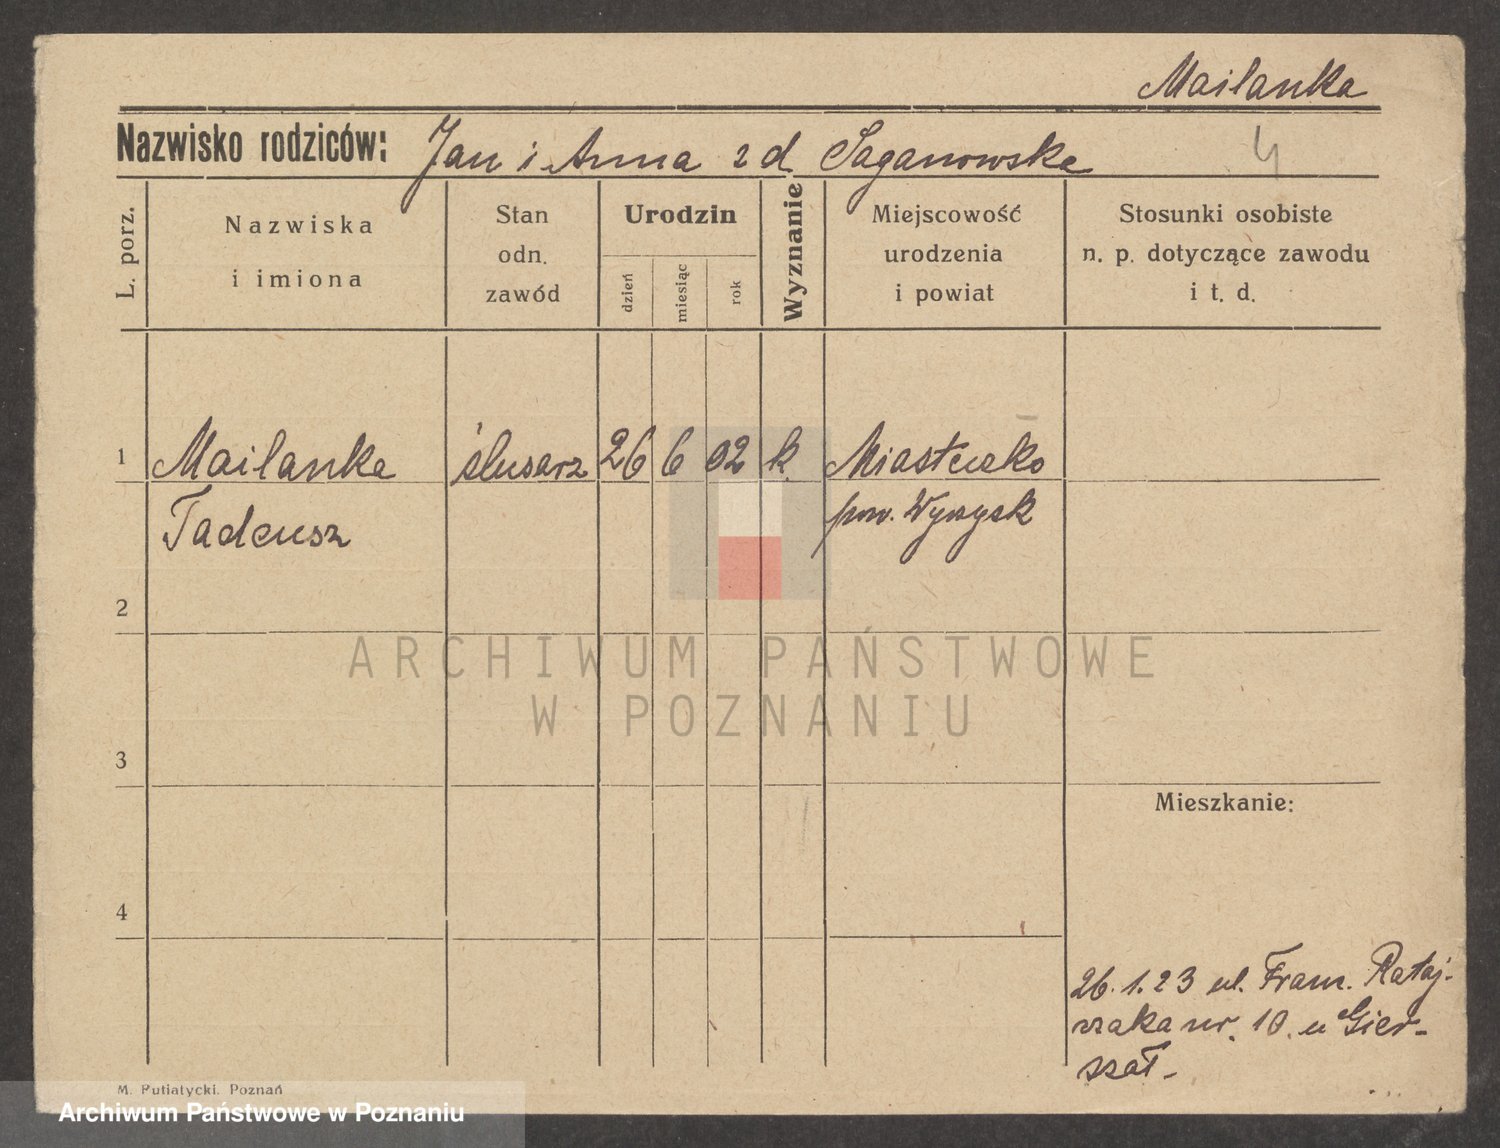 Mailanka
Nazwisko rodziców: Jan i Anna z d Saganowska
4
L. porz.
Nazwiska
i imiona
Stan
odn.
zawód
Urodzin
dzień
miesiąc
rok
Wyznanie
Miejscowość
urodzenia
i powiat
Stosunki osobiste
n. p. dotyczące zawodu
i t. d.
1 Mailanka ślusarz 26 6 02 k Miasteczko
Tadeusz pow. Wyrzysk
2
3
4
ARCHIWUM PAŃSTWOWE
W POZNANIU
Mieszkanie:
26.1.23 ul. Franc. Rataj-
czaka nr. 10. u Gier-
szał.
M. Putiatycki. Poznań
Archiwum Państwowe w Poznaniu